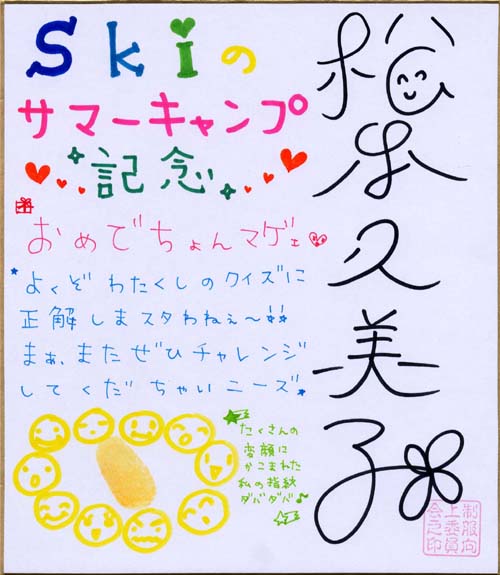 Skiの
サマーキャンプ
記念
おめでちょんマゲェ
よくぞ わたくしのクイズに
正解しまスタわねぇ〜!!
まぁ、またぜひチャレンジ
してくだ ちゃいニーズ
たくさんの
変顔に
かこまれた
私の指紋
ダバダバ♪
松本久美子
制服向
上委員
会之印